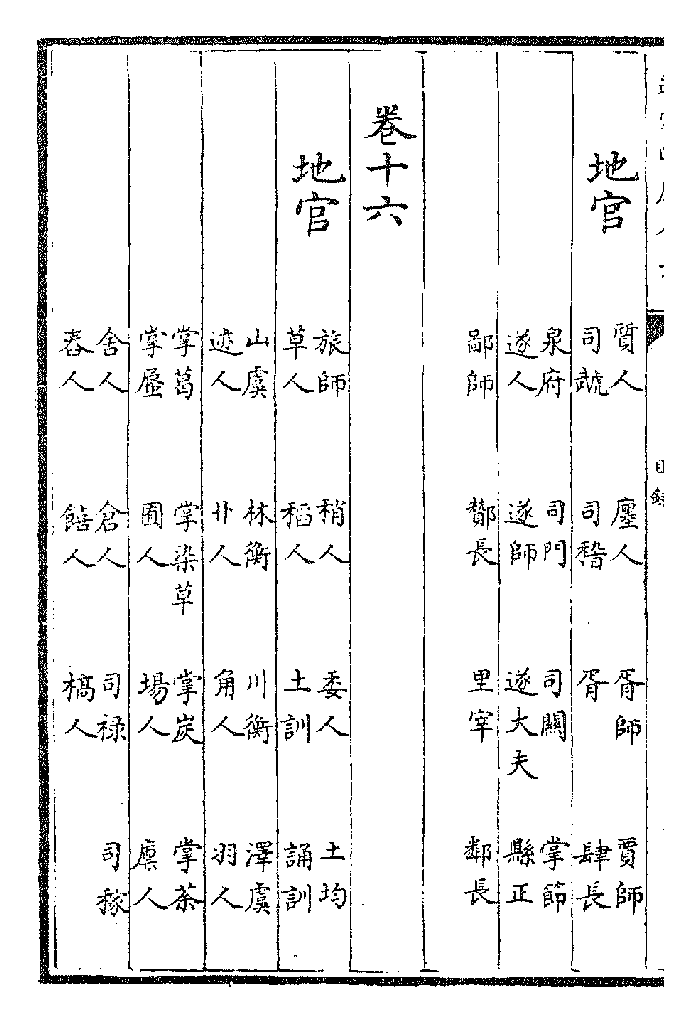 目錄
地官
質人 廛人 胥師 賈師
司虣 司稽 胥 肆長
泉府 司門 司關 掌節
遂人 遂師 遂大夫 縣正
鄙師 酇長 里宰 鄰長
卷十六
地官
旅師 稍人 委人 土均
草人 稻人 土訓 誦訓
山虞 林衡 川衡 澤虞
迹人 卝人 角人 羽人
掌葛 掌染草 掌炭 掌荼
掌蜃 囿人 場人 廩人
舍人 倉人 司祿 司稼
舂人 饎人 槁人